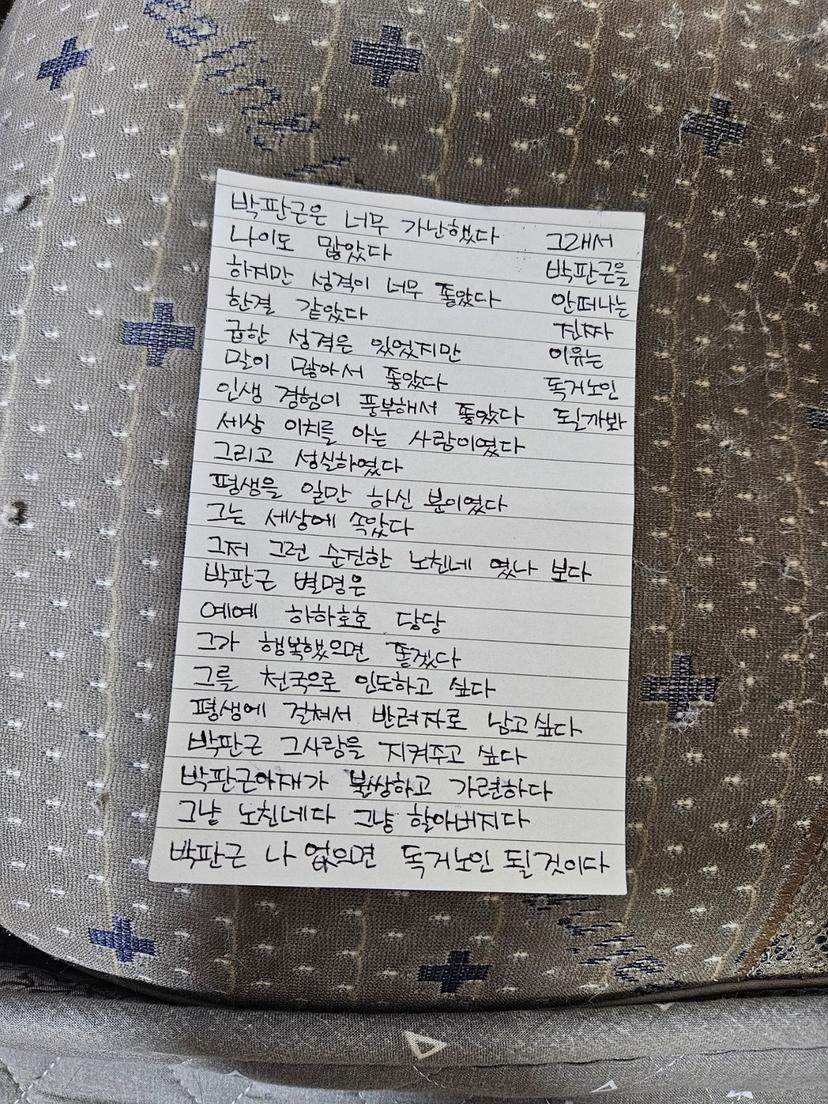 박판근은 너무 가난했다
나이도 많았다
하지만 성격이 너무 좋았다
한결 같았다
급한 성격은 있었지만
말이 많아서 좋았다
인생 경험이 풍부해서 좋았다
세상 이치를 아는 사람이였다
그리고 성실하였다
평생을 일만 하신 분이였다
그는 세상에 속았다
그저 그런 순진한 노친네 였나 보다
박판근 별명은
예예 하하호호 당당
그가 행복했으면 좋겠다
그를 천국으로 인도하고 싶다
평생에 걸쳐서 반려자로 남고싶다
박판근 그사람을 지켜주고 싶다
박판근아재가 불쌍하고 가련하다
그냥 노친네다 그냥 할아버지다
박판근 나 없으면 독거노인 될것이다
그래서
박판근을
안떠나는
진짜
이유는
독거노인
될까봐